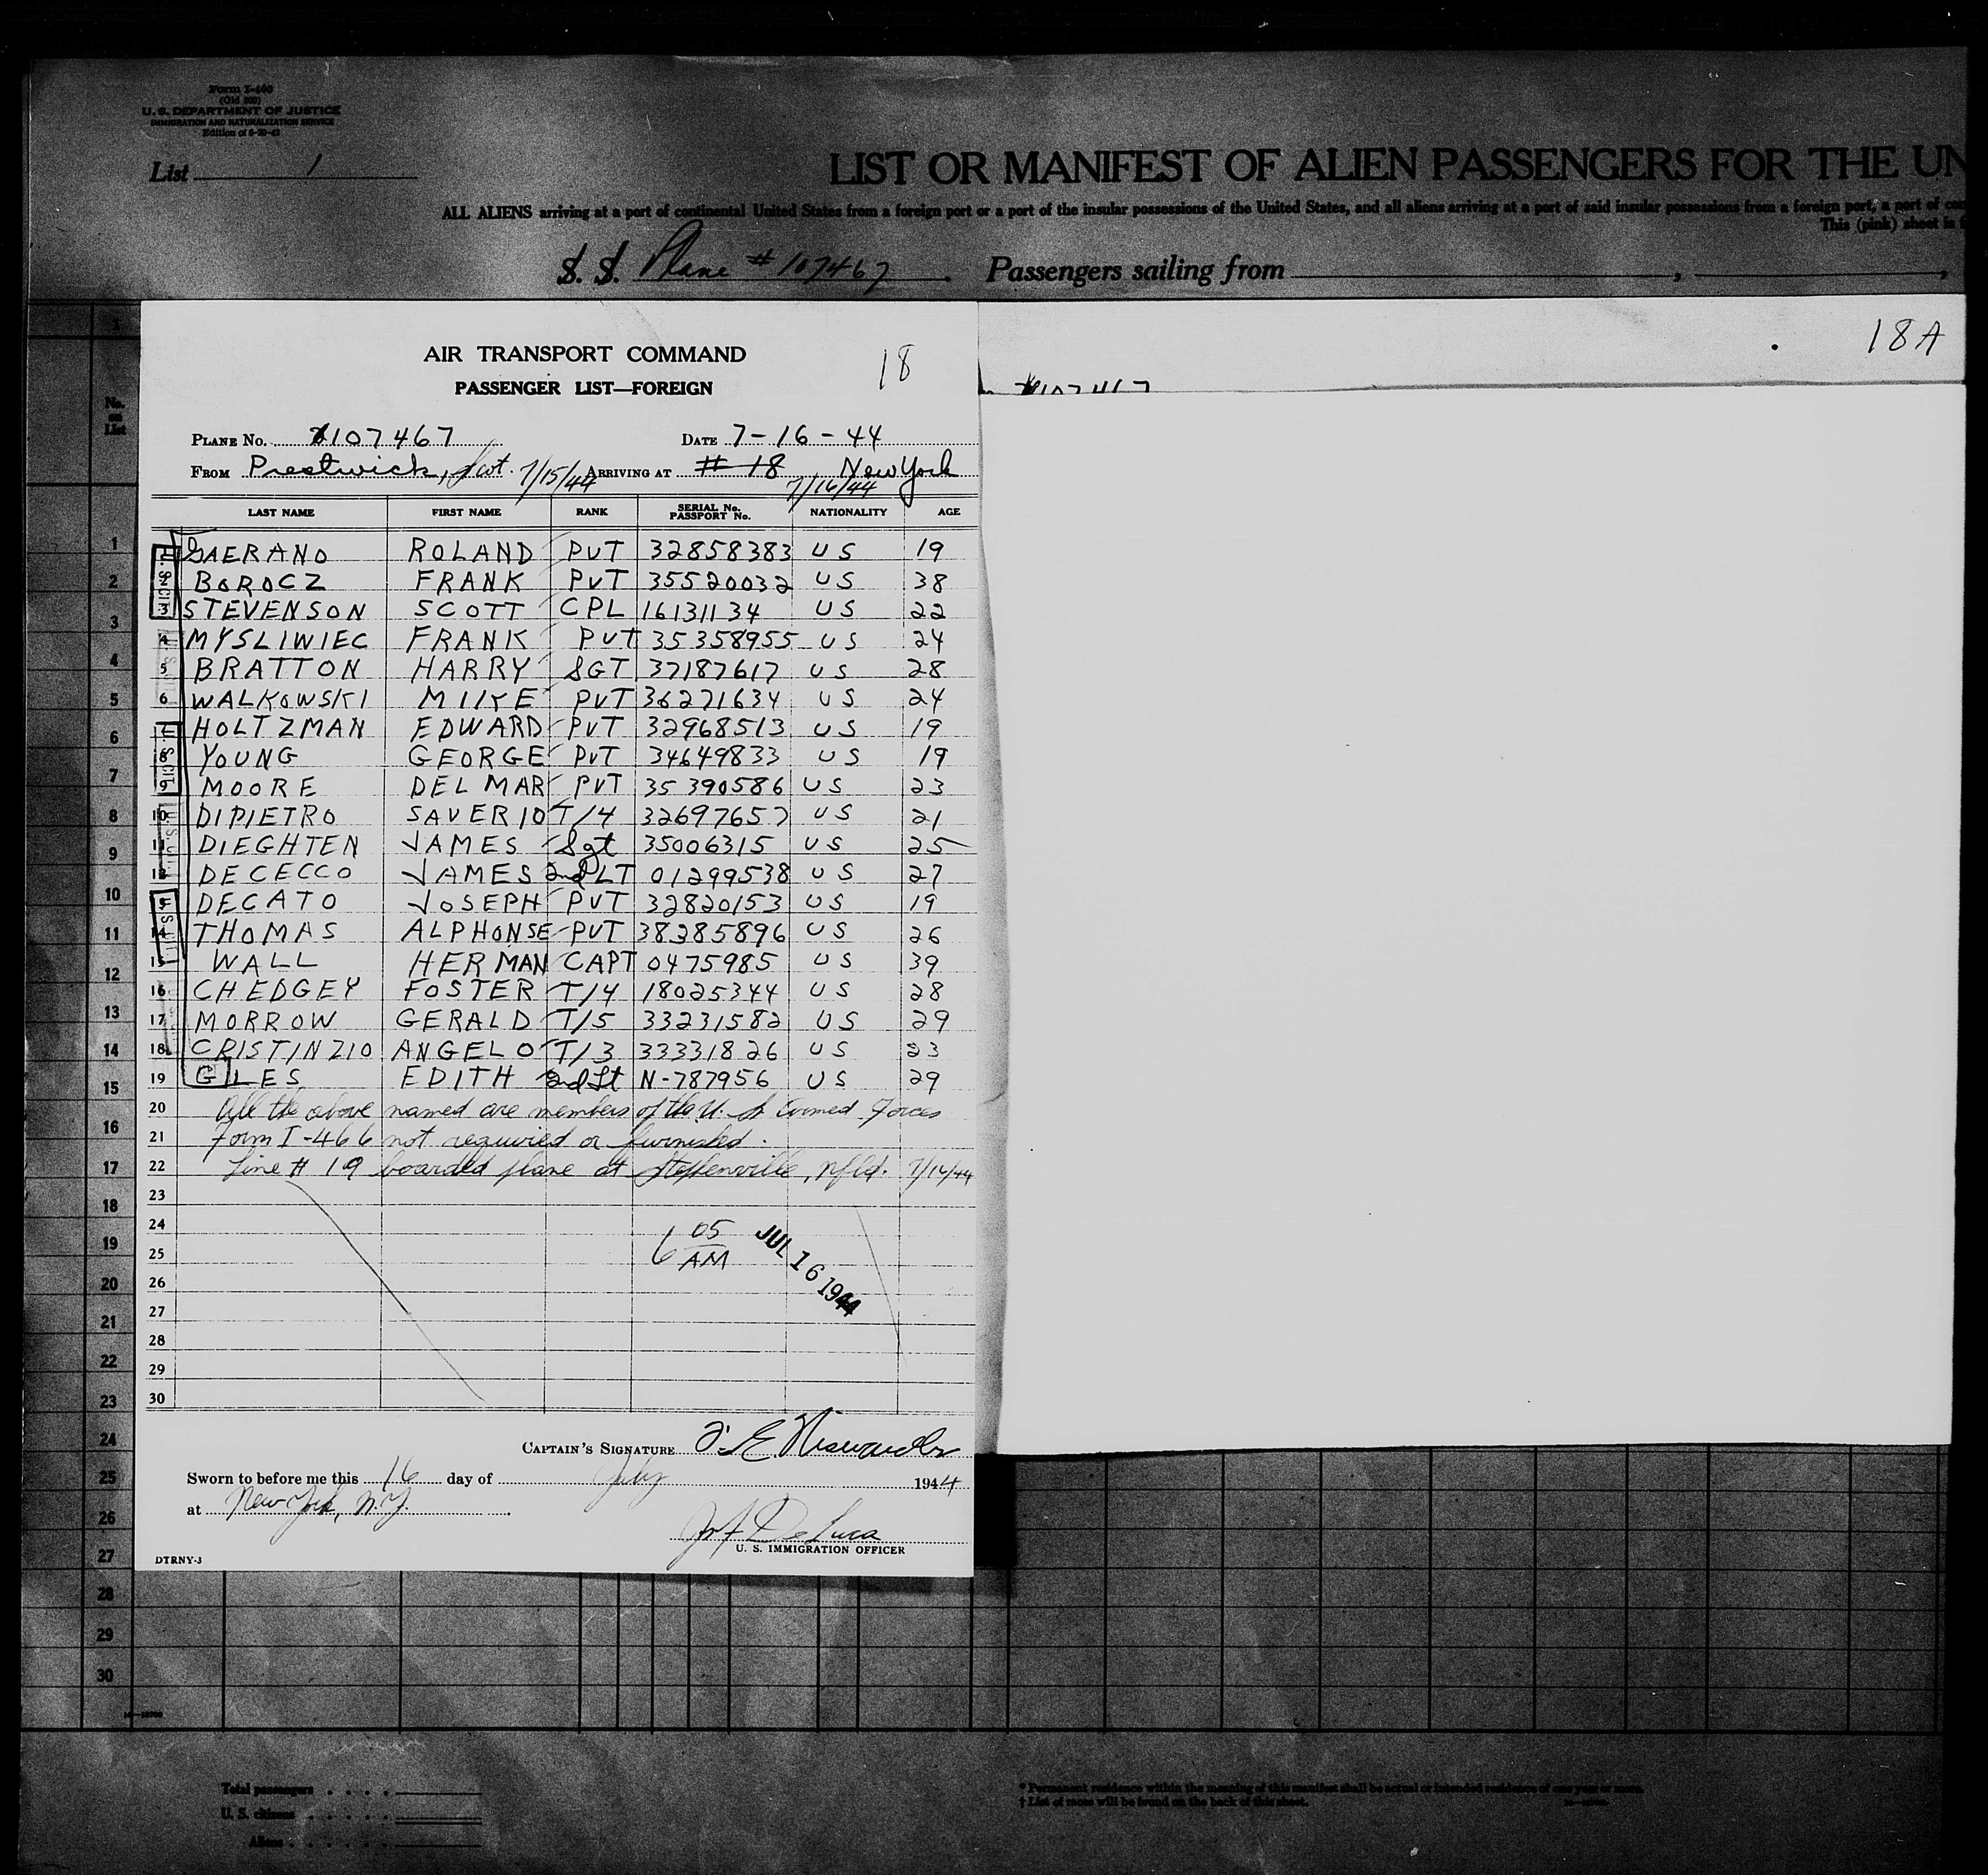 Form I-400
(Old 500)
U. S. DEPARTMENT OF JUSTICE
IMMIGRATION AND NATURALIZATION SERVICE
List 1
LIST OR MANIFEST OF ALIEN PASSENGERS FOR THE UN
ALL ALIENS arriving at a port of continental United States from a foreign port or a port of the insular possessions of the United States, and all aliens arriving at a port of said insular possessions from a foreign port, a port of con
This (pink) sheet is f
S. S. Plane # 107467 Passengers sailing from
18A
AIR TRANSPORT COMMAND 18
PASSENGER LIST—FOREIGN
PLANE NO. 107467 DATE 7-16-44
FROM Prestwick, Scot. 7/15/44 ARRIVING AT # 18, New York
7/16/44
No. on List
LAST NAME FIRST NAME RANK SERIAL No. PASSPORT No. NATIONALITY AGE
1 GAERANO ROLAND PVT 32858383 US 19
2 BOROCZ FRANK PVT 35520032 US 38
3 STEVENSON SCOTT CPL 16131134 US 22
4 MYSLIWIEC FRANK PVT 35358955 US 24
5 BRATTON HARRY SGT 37187617 US 28
6 WALKOWSKI MIKE PVT 36271634 US 24
7 HOLTZMAN EDWARD PVT 32968513 US 19
8 YOUNG GEORGE PVT 34649833 US 19
9 MOORE DEL MAR PVT 35390586 US 23
10 DIPIETRO SAVERIO T/4 32697657 US 21
11 DIEGHTEN JAMES Sgt 35006315 US 25
12 DECECCO JAMES 2nd LT 01299538 US 27
DECATO JOSEPH PVT 32820153 US 19
14 THOMAS ALPHONSE PVT 38385896 US 26
15 WALL HERMAN CAPT 0475985 US 39
16 CHEDGEY FOSTER T/4 18025344 US 28
17 MORROW GERALD T/5 33231582 US 29
18 CRISTINZIO ANGELO T/3 33331826 US 23
19 GILES EDITH 2nd Lt N-787956 US 29
20 All the above named are members of the U. S. Armed Forces
21 Form I-466 not required or furnished.
22 Line # 19 boarded plane at Stephenville, Nfld. 7/16/44
23
24
25 6 05 AM JUL 16 1944
26
27
28
29
30
CAPTAIN'S SIGNATURE
Sworn to before me this 16 day of July 1944
at New York, N.Y.
De Luca
U. S. IMMIGRATION OFFICER
DTRNY-3
1
2
3
4
5
6
7
8
9
10
11
12
13
14
15
16
17
18
19
20
21
22
23
24
25
26
27
28
29
30
Total passengers
U. S. citizens
Aliens
* Permanent residence within the meaning of this manifest shall be actual or intended residence of one year or more.
† List of races will be found on the back of this sheet.